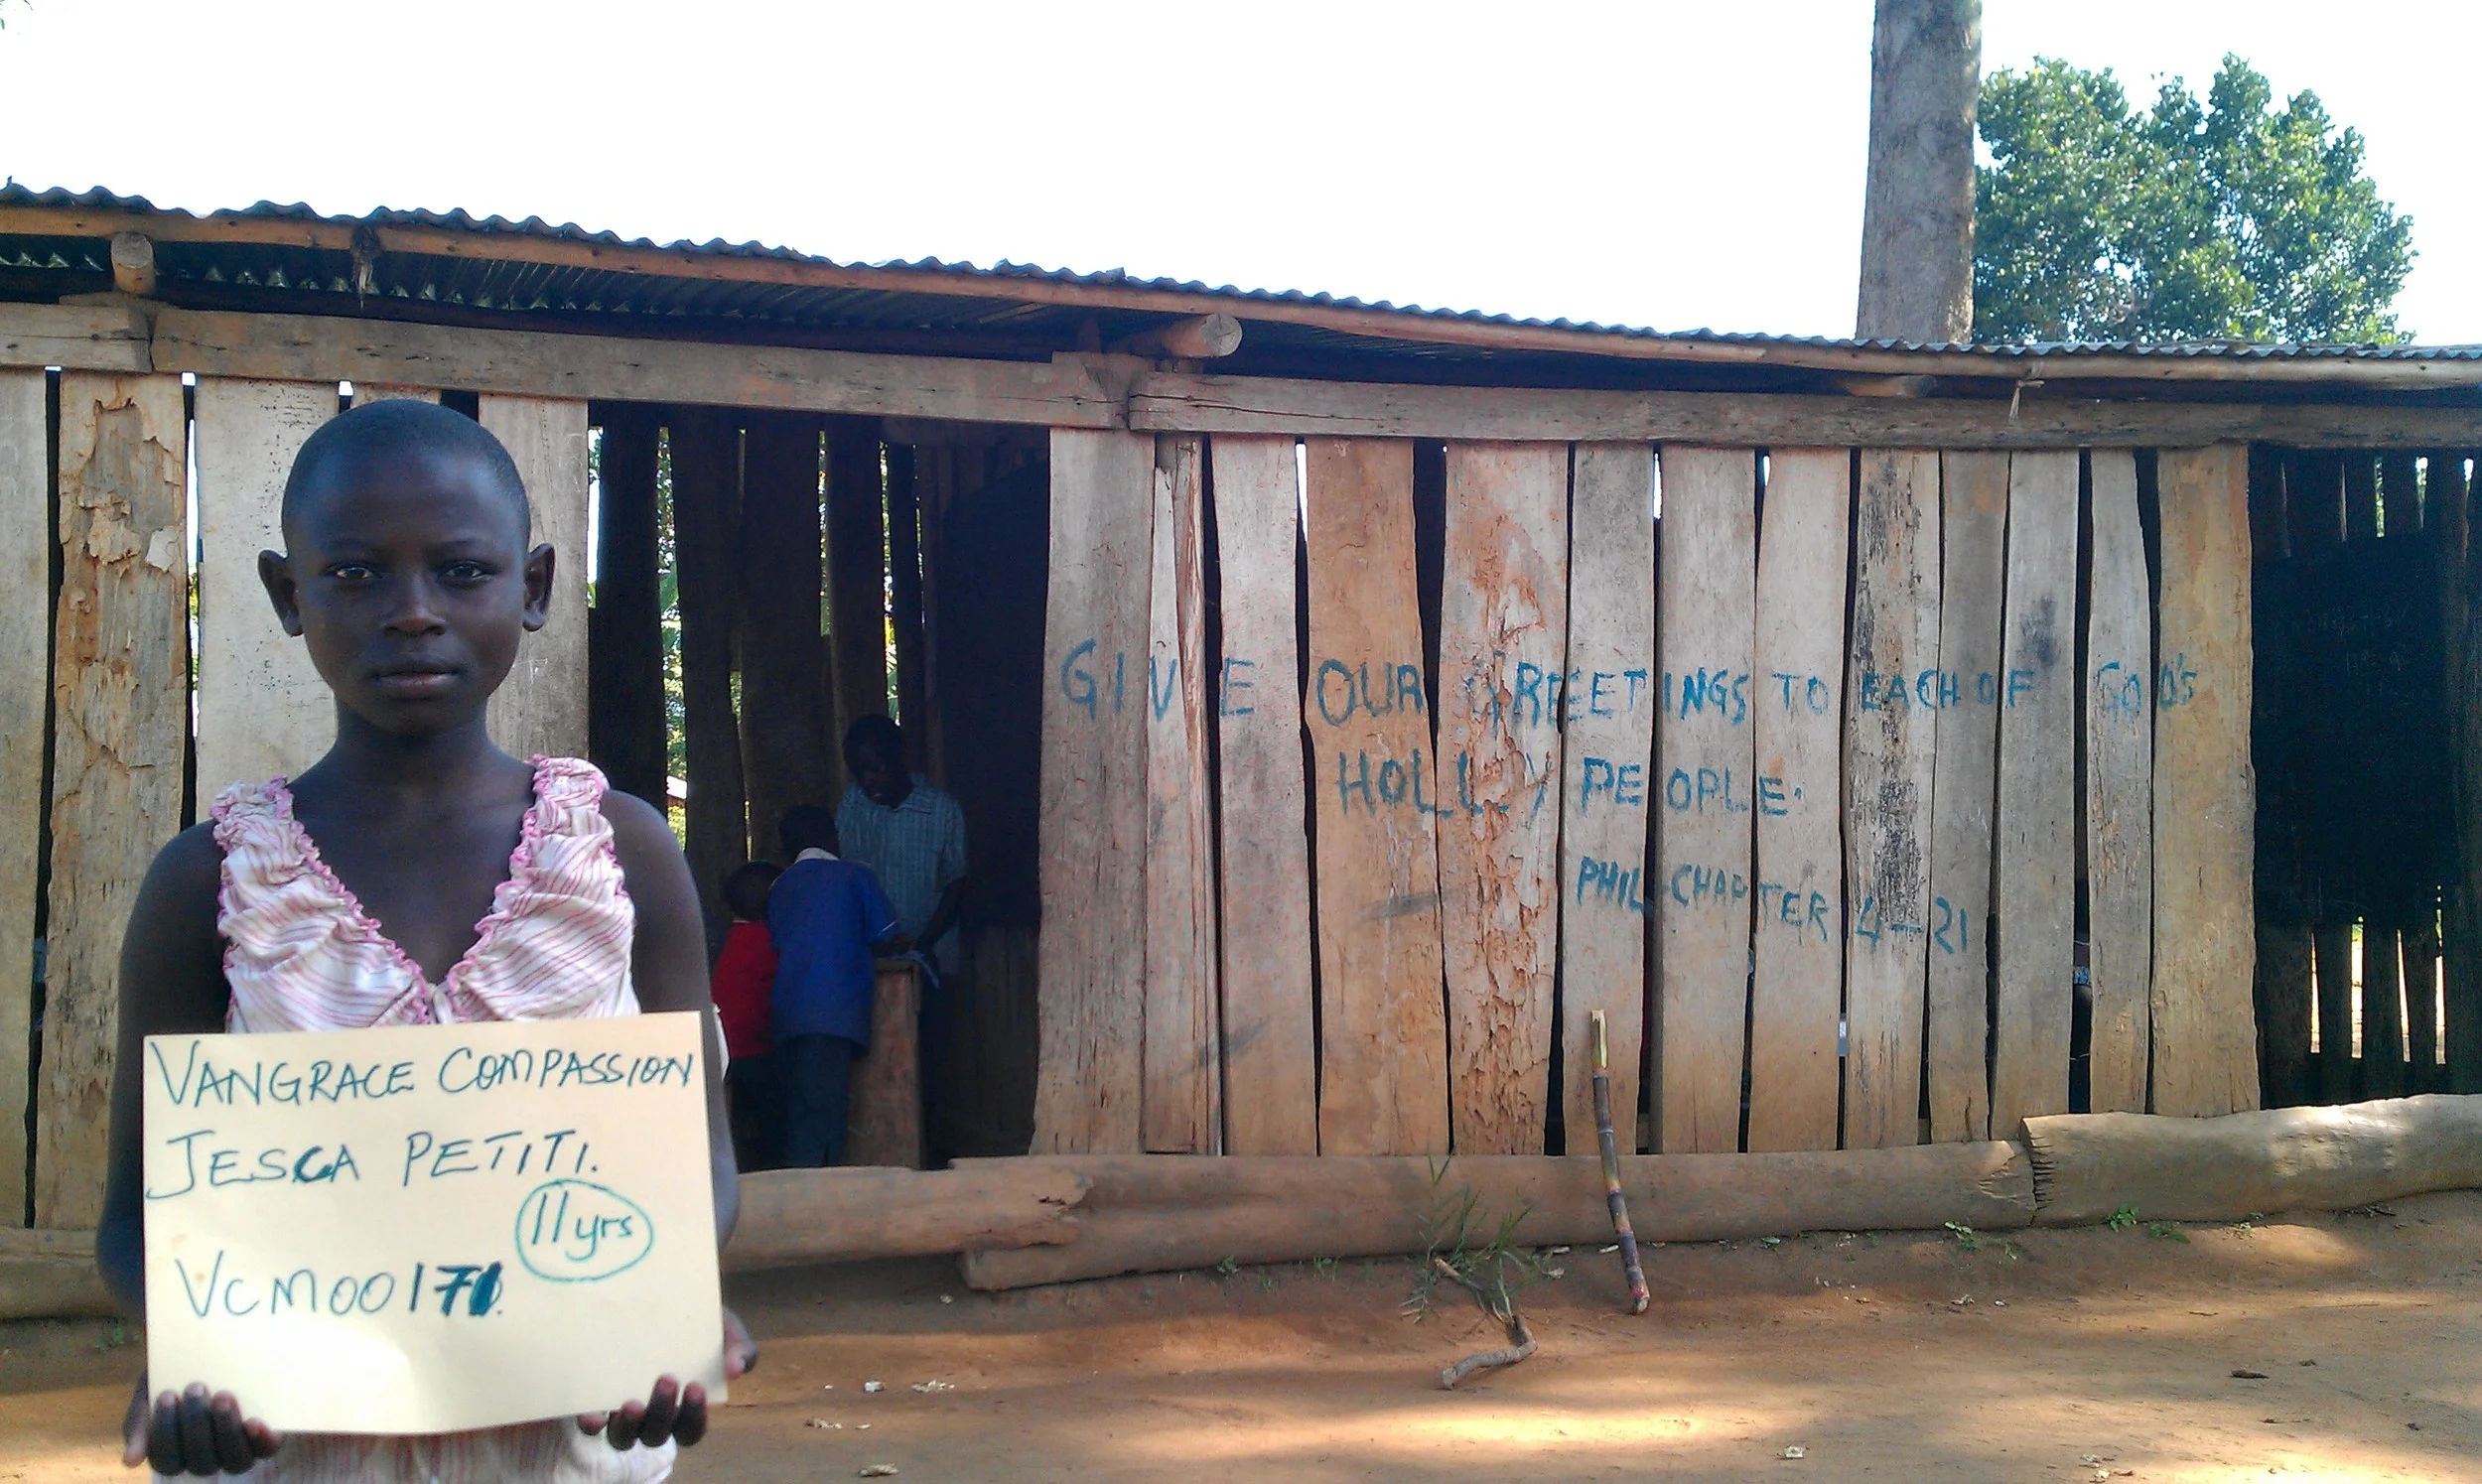 GIVE OUR GREETINGS TO EACH OF GOD'S
HOLLY PEOPLE.
PHIL CHAPTER 4-21
VANGRACE COMPASSION
JESCA PETITI.
11yrs
VCM00171.